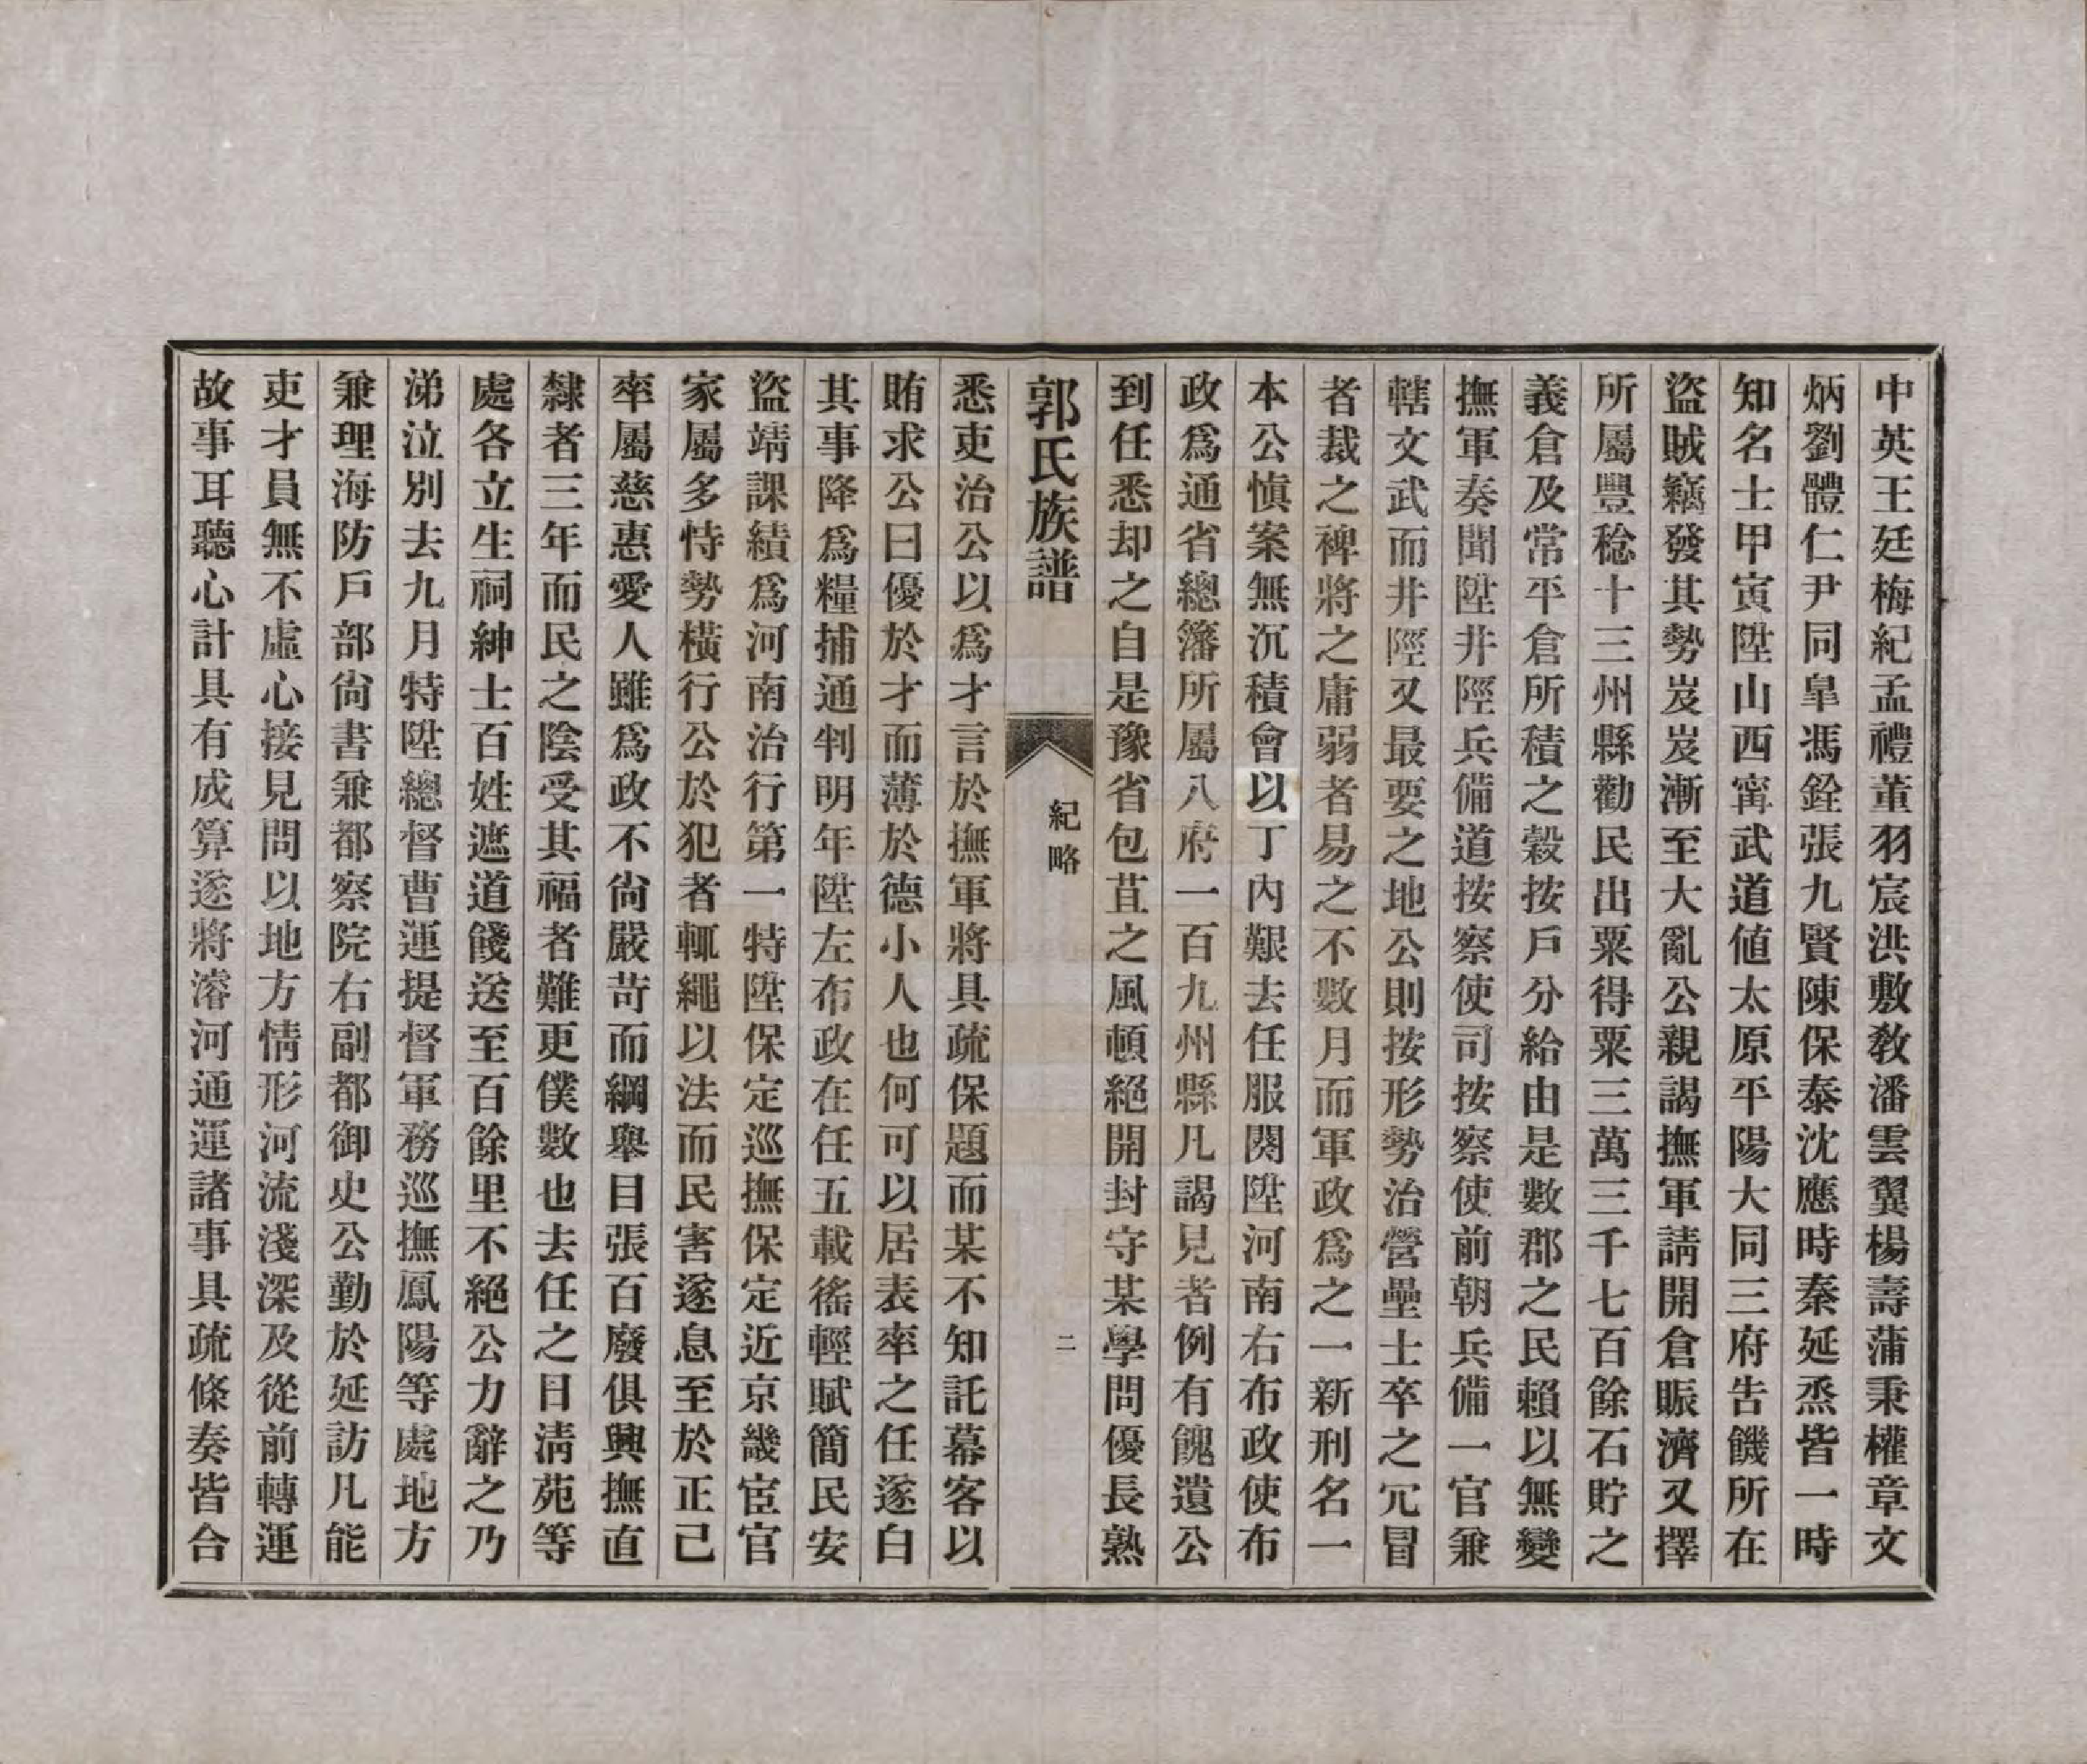 中英王廷梅紀孟禮董羽宸洪敷敎潘雲翼楊壽蒲秉權章文
炳劉體仁尹同皐馮銓張九賢陳保泰沈應時秦延烝皆一時
知名士甲寅陞山西甯武道値太原平陽大同三府吿饑所在
盜賊竊發其勢岌岌漸至大亂公親謁撫軍請開倉賑濟又擇
所屬豐稔十三州縣勸民出粟得粟三萬三千七百餘石貯之
義倉及常平倉所積之穀按戶分給由是數郡之民賴以無變
撫軍奏聞陞井陘兵備道按察使司按察使前朝兵備一官兼
轄文武而井陘又最要之地公則按形勢治營壘士卒之冗冒
者裁之裨將之庸弱者易之不數月而軍政爲之一新刑名一
本公愼案無沉積會以丁內艱去任服闋陞河南右布政使布
政爲通省總籓所屬八府一百九州縣凡謁見者例有餽遺公
到任悉却之自是豫省包苴之風頓絕開封守某學問優長熟
郭氏族譜
紀略
二
悉吏治公以爲才言於撫軍將具疏保題而某不知託幕客以
賄求公曰優於才而薄於德小人也何可以居表率之任遂白
其事降爲糧捕通判明年陞左布政在任五載徭輕賦簡民安
盜靖課績爲河南治行第一特陞保定巡撫保定近京畿宦官
家屬多恃勢橫行公於犯者輒繩以法而民害遂息至於正己
率屬慈惠愛人雖爲政不尙嚴苛而綱舉目張百廢俱興撫直
隸者三年而民之陰受其福者難更僕數也去任之日淸苑等
處各立生祠紳士百姓遮道餞送至百餘里不絕公力辭之乃
涕泣別去九月特陞總督曹運提督軍務巡撫鳳陽等處地方
兼理海防戶部尙書兼都察院右副都御史公勤於延訪凡能
吏才員無不虛心接見問以地方情形河流淺深及從前轉運
故事耳聽心計具有成算遂將濬河通運諸事具疏條奏皆合